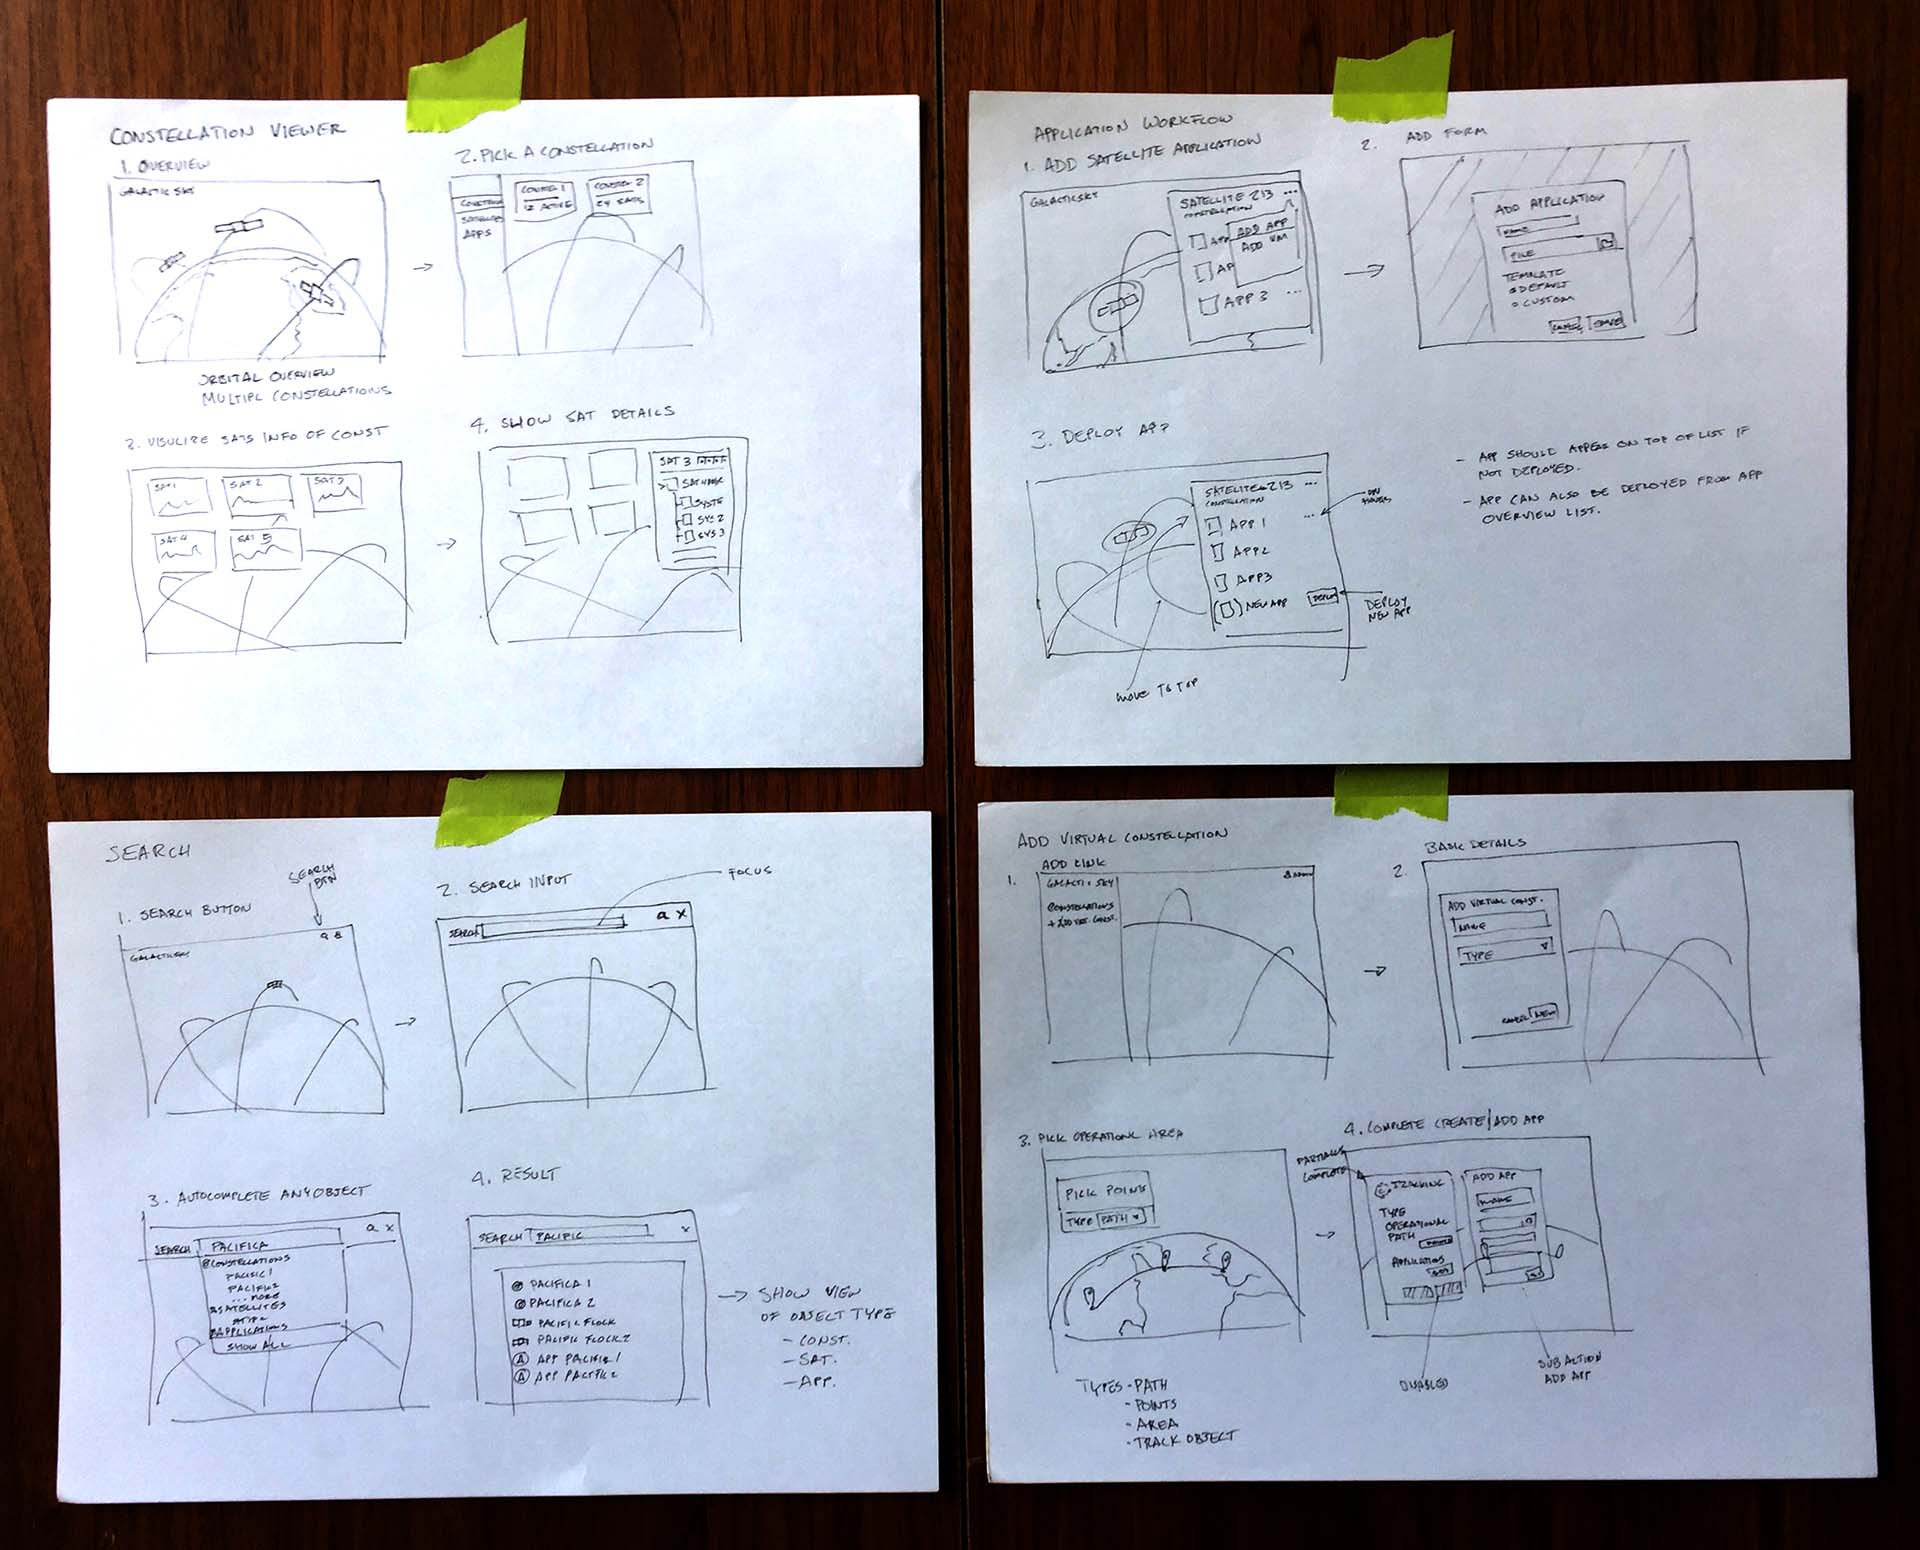 CONSTELLATION VIEWER
1. OVERVIEW
GALACTIC SKY
ORBITAL OVERVIEW
MULTIPL CONSTELLATIONS
2. PICK A CONSTELLATION
CONST 1
12 ACTIVE
CONST 2
24 SATS
SATELLITES
APPS
3. VISULIZE SATS INFO OF CONST
SAT 1
SAT 2
SAT 3
SAT 4
SAT 5
4. SHOW SAT DETAILS
SAT 3
SAT NAME
SYSTE
SYS 2
SYS 3
APPLICATION WORKFLOW
1. ADD SATELLITE APPLICATION
GALACTICSKY
SATELLITE 213 ...
CONSTELLATION
AP
ADD APP
ADD VM
AP
APP 3 ...
2. ADD FORM
ADD APPLICATION
NAME
FILE
TEMPLATE
DEFAULT
CUSTOM
CANCEL
SAVE
3. DEPLOY APP
SATELITE 213 ...
CONSTELLATION
APP 1 ...
APP2
APP3
NEW APP
DEPLOY
ON HOVER
DEPLOY
NEW APP
MOVE TO TOP
- APP SHOULD APPEAR ON TOP OF LIST IF
NOT DEPLOYED.
- APP CAN ALSO BE DEPLOYED FROM APP
OVERVIEW LIST.
SEARCH
1. SEARCH BUTTON
SEARCH
BTN
GALACTICSKY
2. SEARCH INPUT
FOCUS
SEARCH
X
3. AUTOCOMPLETE ANY OBJECT
SEARCH
PACIFICA
X
CONSTELLATIONS
PACIFIC 1
PACIFIC 2
... MORE
SATELLITES
APPLICATIONS
SHOW ALL
4. RESULT
SEARCH
PACIFIC
X
PACIFICA 1
PACIFICA 2
PACIFIC FLOCK
PACIFIC FLOCK 2
A APP PACIFIC 1
A APP PACIFIC 2
SHOW VIEW
OF OBJECT TYPE
- CONST.
- SAT.
- APP.
ADD VIRTUAL CONSTELLATION
1. ADD LINK
GALACTIC SKY
CONSTELLATIONS
+ ADD VRT. CONST.
2. BASIC DETAILS
ADD VIRTUAL CONST.
NAME
TYPE
CANCEL
NEW
3. PICK OPERATIONL AREA
PICK POINTS
TYPE
PATH
TYPES - PATH
- POINTS
- AREA
- TRACK OBJECT
4. COMPLETE CREATE/ADD APP
PARTIALLY
COMPLETE
TRACKING
TYPE
OPERATIONAL
PATH
APPLICATIONS
ADD
ADD APP
NAME
DISABLED
SUB ACTION
ADD APP